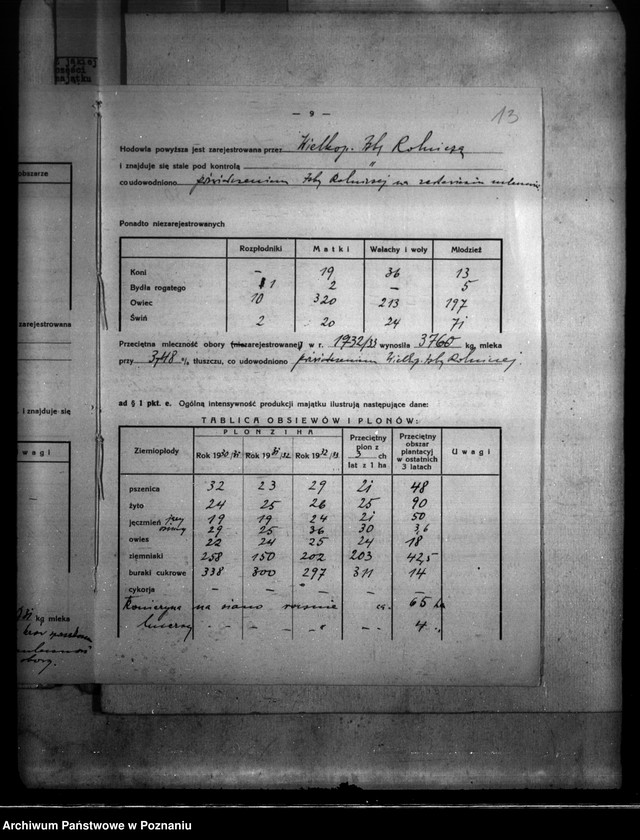 z jakiej
części
majątku
obszarze
zarejestrowana
i znajduje się
wagi
kg mleka
obory.
— 9 —
13
Hodowla powyższa jest zarejestrowana przez Wielkop. Izbę Rolniczą
i znajduje się stale pod kontrolą "
co udowodniono Izby Rolniczej na
Ponadto niezarejestrowanych
Rozpłodniki Matki Wałachy i woły Młodzież
Koni — 19 36 13
Bydła rogatego 1 2 — 5
Owiec 10 320 213 197
Świń 2 20 24 71
Przeciętna mleczność obory (niezarejestrowanej) w r. 1932/33 wynosiła 3760 kg. mleka
przy 3,48 % tłuszczu, co udowodniono Wielkp. Izby Rolniczej.
ad § 1 pkt. e. Ogólną intensywność produkcji majątku ilustrują następujące dane:
TABLICA OBSIEWÓW I PLONÓW:
Ziemiopłody PLON Z 1 HA Przeciętny plon z 3 ch lat z 1 ha Przeciętny obszar plantacyj w ostatnich 3 latach Uwagi
Rok 1930/31 Rok 1931/32 Rok 1932/33
pszenica 32 23 29 21 48
żyto 24 25 26 25 90
jęczmień jary 19 19 24 21 50
ozimy 29 25 36 30 3,6
owies 22 24 25 24 18
ziemniaki 258 150 202 203 42,5
buraki cukrowe 338 300 297 311 14
cykorja — — — — —
Koniczyna na siano rocznie ca. 65 ha
lucerny — — — " — — 4 "
Archiwum Państwowe w Poznaniu